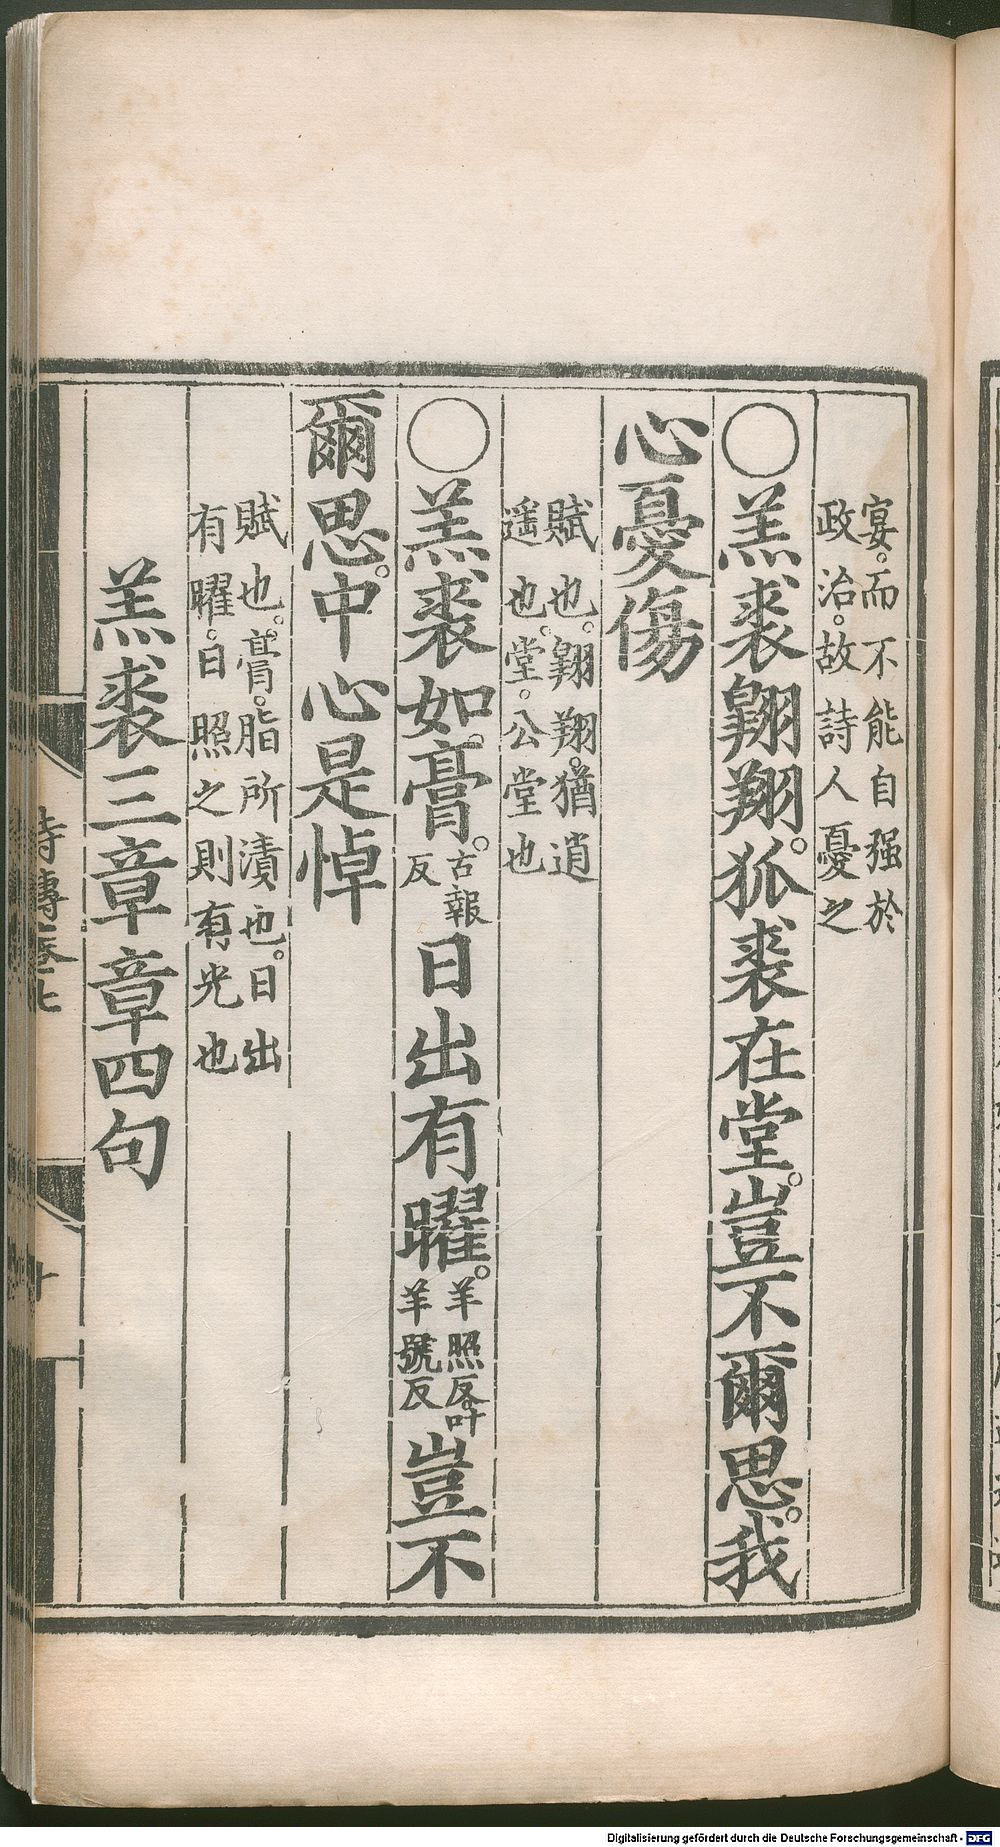 宴。而不能自强於
政治。故詩人憂之
○羔裘翺翔。狐裘在堂。豈不爾思。我
心憂傷
賦也。翺翔。猶逍
遥也。堂。公堂也
○羔裘如膏。古報反日出有曜。羊照反叶羊號反豈不
爾思。中心是悼
賦也。膏。脂所漬也。日出
有曜。日照之則有光也
羔裘三章章四句
詩傳卷七
十
Digitalisierung gefördert durch die Deutsche Forschungsgemeinschaft - DFG